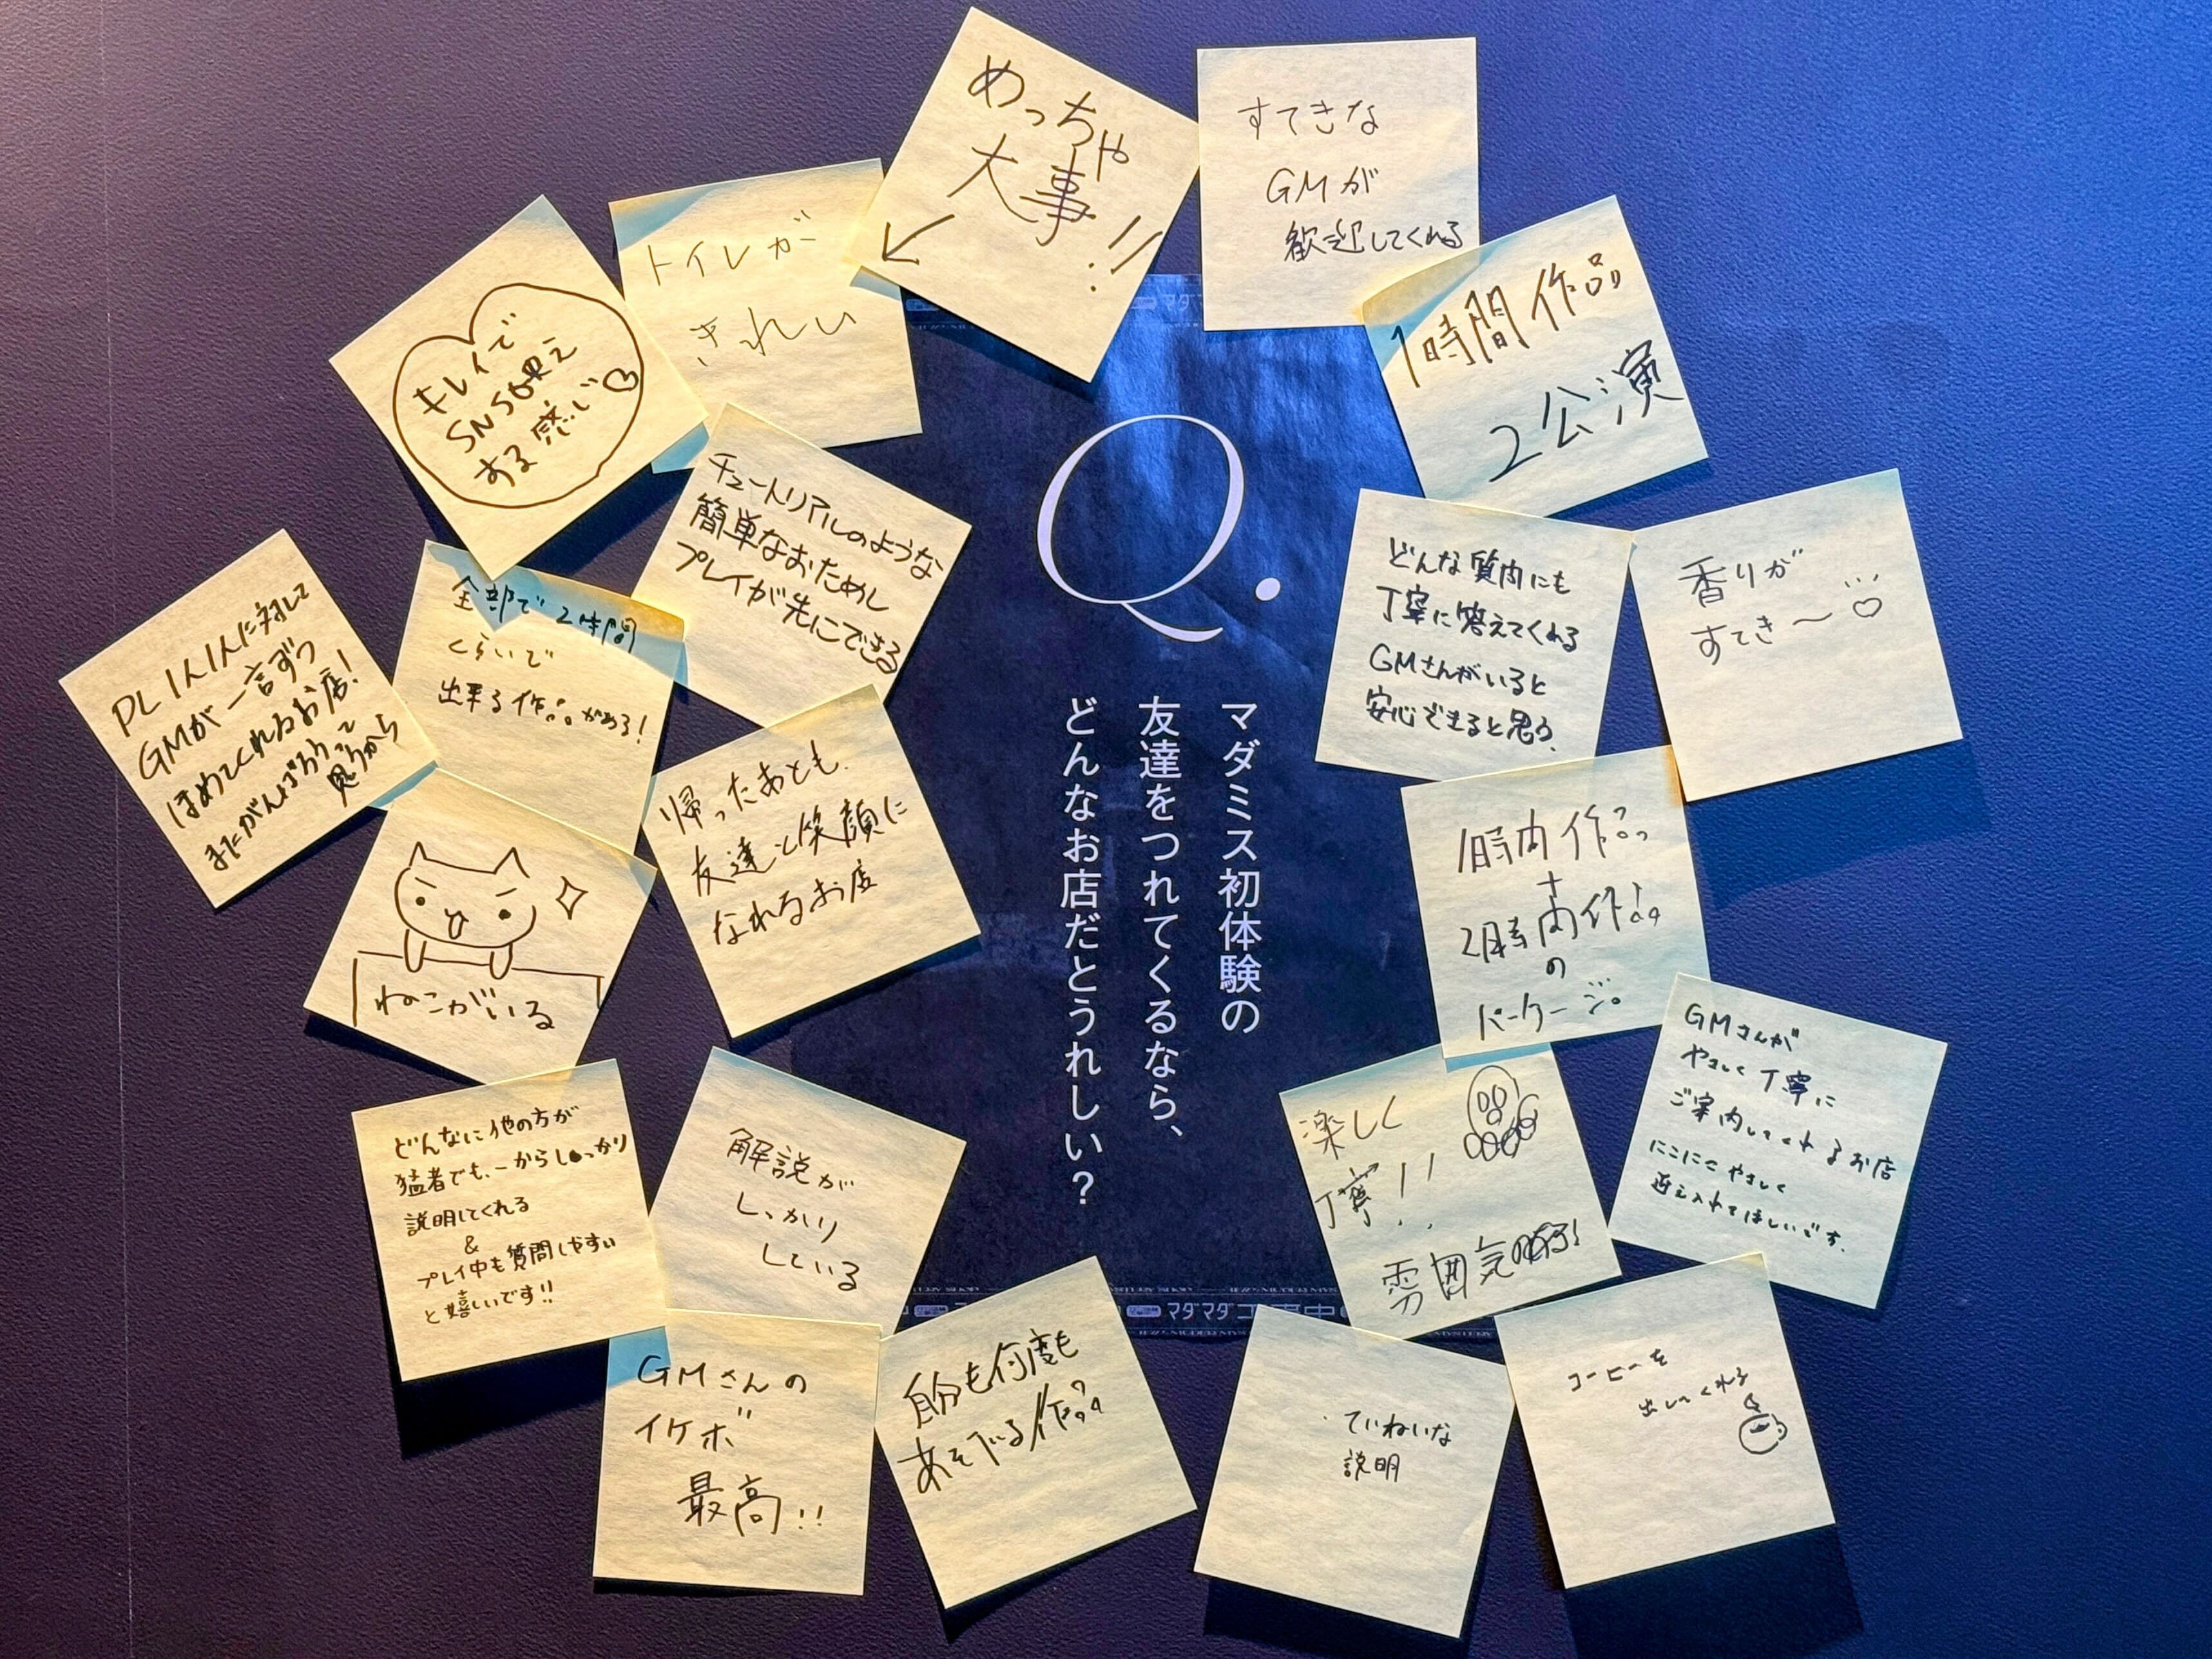 めっちゃ
大事!!
すてきな
GMが
歓迎してくれる
トイレが
きれい
1時間作品
2公演
キレイで
SNS映え
する感じ
チュートリアルのような
簡単なおためし
プレイが先にできる
どんな質問にも
丁寧に答えてくれる
GMさんがいると
安心できると思う、
香りが
すてき〜
PL1人1人に対して
GMが一言ずつ
ほめてくれるお店!
またがんばろうって
思うから
全部で2時間
くらいで
出来る作品がある!
帰ったあとも、
友達と笑顔に
なれるお店
Q.
マダミス初体験の
友達をつれてくるなら、
どんなお店だとうれしい?
1時間作品
+
2時間作品
の
パッケージ。
ねこがいる
GMさんが
やさしく丁寧に
ご案内してくれるお店
にこにこやさしく
迎え入れてほしいです.
楽しく
丁寧!!
雰囲気
どんなに他の方が
猛者でも、一からしっかり
説明してくれる
&
プレイ中も質問しやすい
と嬉しいです!!
解説が
しっかり
している
マダマダ工事中
GMさんの
イケボ
最高!!
自分も何度も
あそんでいる作品
ていねいな
説明
コーヒーを
出してくれる